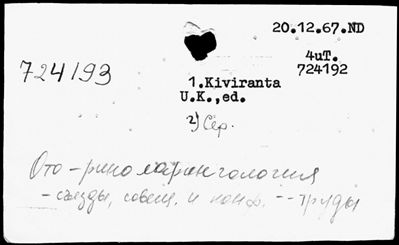 20.12.67.ND
4uT.
724193
724192
1.Kiviranta
U.K.,ed.
2) Сер.
Ото-риноларингология
- съезды, совещ. и конф. -- труды